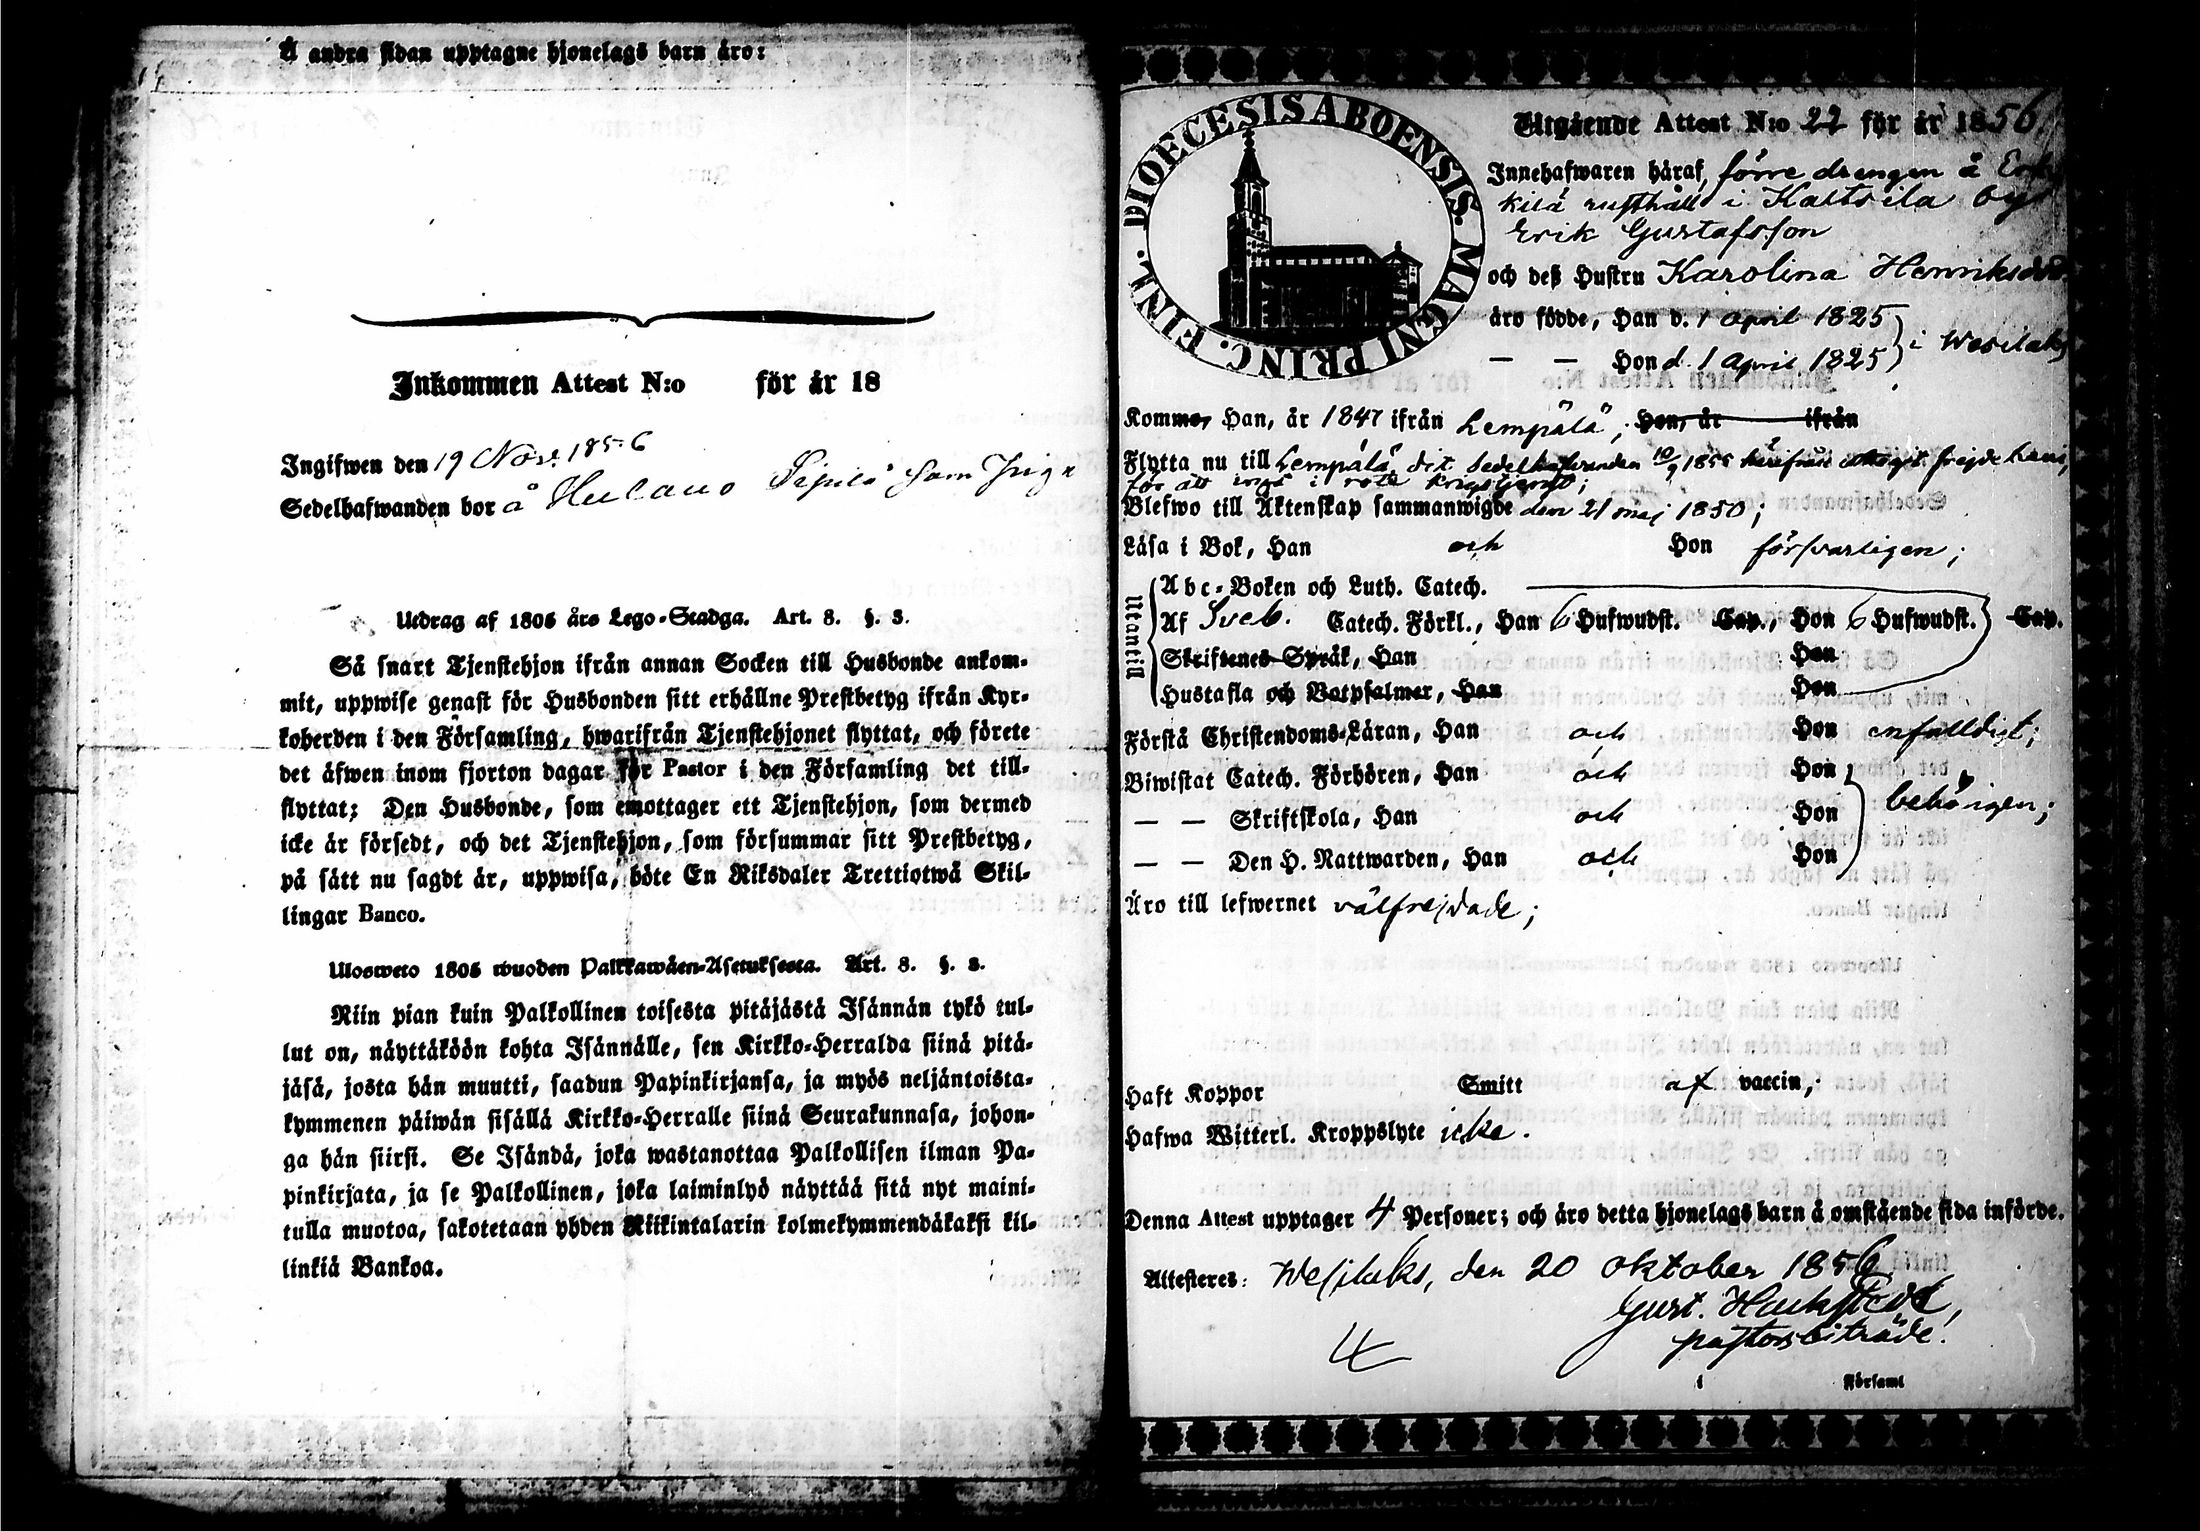 Å andra sidan upptagne hjonelags barn äro:
Inkommen Attest N:o för år 18
Ingifwen den 19 Nov. 1856
Sedelhafwanden bor å Hulaus Sipilä som
Utdrag af 1805 års Lego-Stadga. Art. 8. §. 3.
Så snart Tjenstehjon ifrån annan Socken till Husbonde ankom-
mit, uppwise genast för Husbonden sitt erhållne Prestbetyg ifrån Kyr-
koherden i den Församling, hwarifrån Tjenstehjonet flyttat, och förete
det äfwen inom fjorton dagar för Pastor i den Församling det till-
flyttat; Den Husbonde, som emottager ett Tjenstehjon, som dermed
icke är försedt, och det Tjenstehjon, som försummar sitt Prestbetyg,
på sätt nu sagdt är, uppwisa, böte En Riksdaler Trettiotwå Skil-
lingar Banco.
Ulosweto 1805 wuoden Palkkawäen-Asetuksesta. Art. 8. §. 3.
Niin pian kuin Palkollinen toisesta pitäjästä Isännän tykö tul-
lut on, näyttäköön kohta Isännälle, sen Kirkko-Herralda siinä pitä-
jäsä, josta hän muutti, saadun Papinkirjansa, ja myös neljäntoista-
kymmenen päiwän sisällä Kirkko-Herralle siinä Seurakunnasa, johon-
ga hän siirsi. Se Isändä, joka wastanottaa Palkollisen ilman Pa-
pinkirjata, ja se Palkollinen, joka laiminlyö näyttää sitä nyt maini-
tulla muotoa, sakotetaan yhden Riikintalarin kolmekymmendäkaksi kil-
linkiä Bankoa.
DIOECESIS ABOENSIS. MAGNI PRINC. FINL.
Utgående Attest N:o 22 för år 1856
Innehafwaren häraf, förre drengen å Erk-
kilä rusthåll i Kaltsila by
Erik Gustafsson
och deß Hustru Karolina Henriksdr
äro födde, Han d. 1 april 1825
— — Hon d. 1 april 1825 i Wesilaks
Komme, Han, år 1847 ifrån Lempälä, Hon, år ifrån
Flytta nu till Lempälä, dit Sedelhafwanden 10/9 1855 härifrån frejdebewis,
för att ingå i rote krigstjenst;
Blefwo till Äktenskap sammanwigde den 21 maj 1850;
Läsa i Bok, Han och Hon försvarligen;
Utantill
Abc-Boken och Luth. Catech.
Af Sveb. Catech. Förkl., Han 6 Hufwudst. Cap., Hon 6 Hufwudst. Cap.
Skriftenes Språk, Han Hon
Hustafla och Botpsalmer, Han Hon
Förstå Christendoms-Läran, Han och Hon enfalldigt;
Biwistat Catech. Förhören, Han och Hon
— — Skriftskola, Han och Hon behörigen;
— — Den H. Nattwarden, Han och Hon
Äro till lefwernet välfrejdade;
Haft Koppor Smitt af vaccin;
Hafwa Witterl. Kroppslyte icke.
Denna Attest upptager 4 Personer; och äro detta hjonelags barn å omstående sida införde.
Attesteres: Wesilaks, den 20 oktober 1856
Gust. Hackstedt,
pastorsbiträde.
4
i Församl